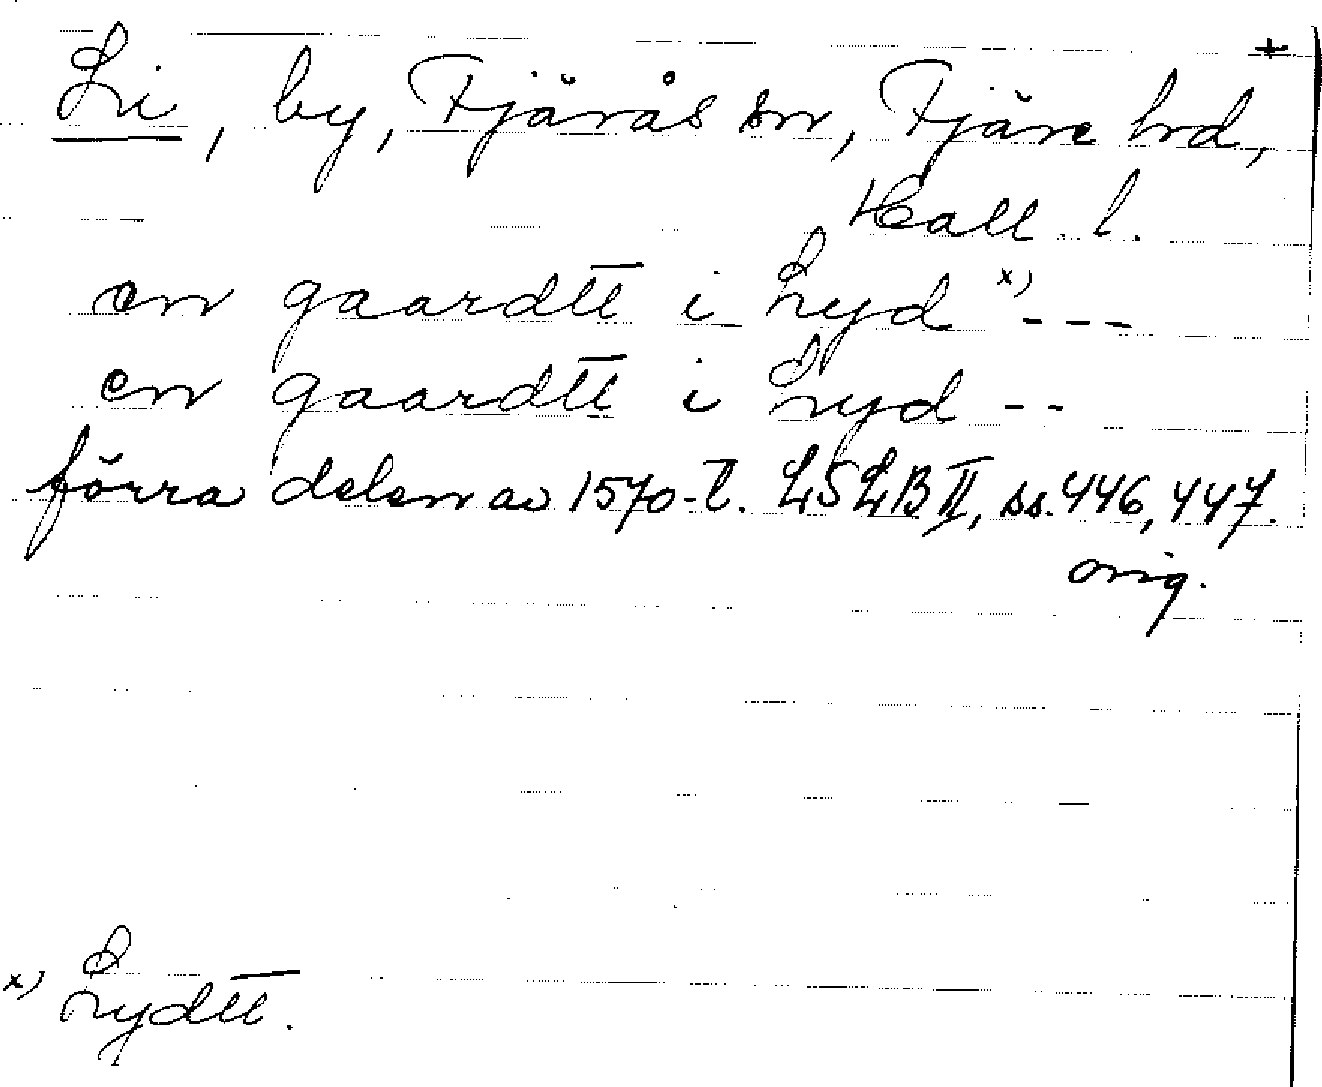 +
Li, by, Fjärås sn, Fjäre hrd,
Hall. l.
en gaardtt i Lyd x) ---
en gaardtt i Lyd --
förra delen av 1570-t. LSLB II, ss. 446, 447.
orig.
x) Lydtt.